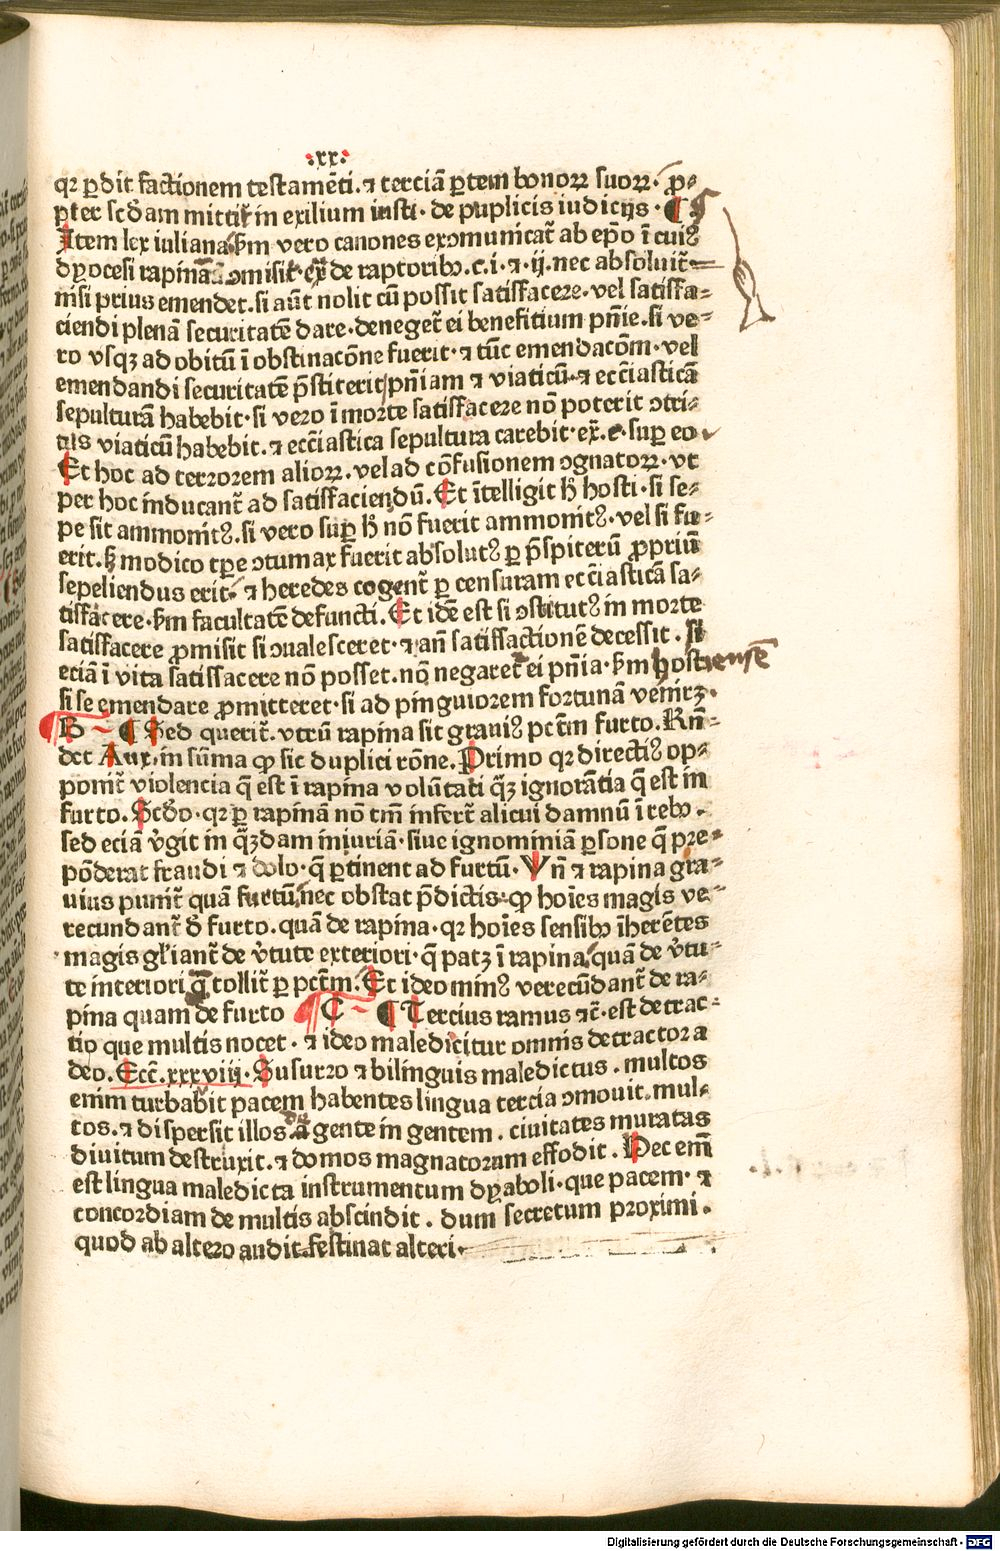 .xx.
qꝛ ꝑdit factionem testamēti. ⁊ terciā ꝑtem bonoꝝ suoꝝ. ꝓ-
pter scđam mittit̄ in exilium insti. de puplicis iudicijs. ¶
Item lex iuliana. ẜm vero canones excomunicat̄ ab ep̄o ī cuiꝰ
dyocesi rapinā ꝯmisit. ex̄ de raptoribꝫ. c. i. ⁊ ij. nec absoluit̄
nisi prius emendet. si aūt nolit cū possit satisfacere. vel satisfa-
ciendi plenā securitatē dare. deneget̄ ei benefitium pn̄ie. si ve-
ro vsqꝫ ad obitū ī obstinacōne fuerit. ⁊ tūc emendacōm. vel
emendandi securitatē p̄stiterit pn̄iam ⁊ viaticū. ⁊ ecc̄iasticā
sepulturā habebit. si vero ī morte satisfacere nō poterit ↄtri-
tus viaticū habebit. ⁊ ecc̄iastica sepultura carebit. ex̄. e. suꝑ eo
Et hoc ad terrorem alioꝝ. vel ad cōfusionem ↄgnatoꝝ. vt
per hoc inducant̄ ad satisfaciendū. Et ītelligit h̄ hosti. si se-
pe sit ammonitꝰ. si vero suꝑ h̄ nō fuerit ammonitꝰ. vel si fu-
erit. ꝫ modico tꝑe ↄtumax fuerit absolutꝰ ꝑ p̄spiterū ꝓpriū
sepeliendus erit. ⁊ heredes cogent̄ ꝑ censuram ecc̄iasticā sa-
tisfacere. ẜm facultatē defuncti. Et idē est si ↄstitutꝰ in morte
satisfacere ꝓmisit si ↄualesceret. ⁊ an̄ satisfactionē decessit. Si
eciā ī vita satisfacere nō posset. nō negaret̄ ei pn̄ia. ẜm hostiensē
si se emendare ꝓmitteret. si ad pinguiorem fortunā venirꝫ.
B ¶ Sed querit̄. vtrū rapina sit grauiꝰ pctm̄ furto. Rn̄-
det Aux. in sūma ꝙ sic duplici rōne. Primo qꝛ directiꝰ op-
ponit̄ violencia q̄ est ī rapina volūtati q̄ꝫ ignorātia q̄ est in
furto. Scđo. qꝛ ꝑ rapinā nō tm̄ infert̄ alicui damnū ī rebꝫ.
sed eciā v̓git in q̄ꝫdam iniuriā. siue ignominiā ꝑsone q̄ pre-
pōderat fraudi ⁊ dolo. q̄ ꝑtinent ad furtū. Vn̄ ⁊ rapina gra-
uius punit̄ quā furtū, nec obstat p̄dictis. ꝙ hoīes magis ve-
recundant̄ đ furto. quā de rapina. qꝛ hoīes sensibꝫ īherētes
magis gl̓iant̄ de v̓tute exteriori. q̄ patꝫ ī rapina, quā de v̓tu-
te interiori q̄ tollit̄ ꝑ pctm̄. Et ideo minꝰ verecūdant̄ de ra-
pina quam de furto C ¶ Tercius ramus ⁊c̄. est detrac-
tio que multis nocet. ⁊ ideo maledicitur omnis detractor a
deo. Ecc̄. xxxviij. Susurro ⁊ bilinguis maledictus. multos
enim turbabit pacem habentes lingua tercia ↄmouit. mul-
tos. ⁊ dispersit illos a gente in gentem. ciuitates muratas
diuitum destruxit. ⁊ domos magnatorum effodit. Hec em̄
est lingua maledicta instrumentum dyaboli. que pacem. ⁊
concordiam de multis abscindit. dum secretum proximi.
quod ab altero audit. festinat alteri.
Digitalisierung gefördert durch die Deutsche Forschungsgemeinschaft - DFG